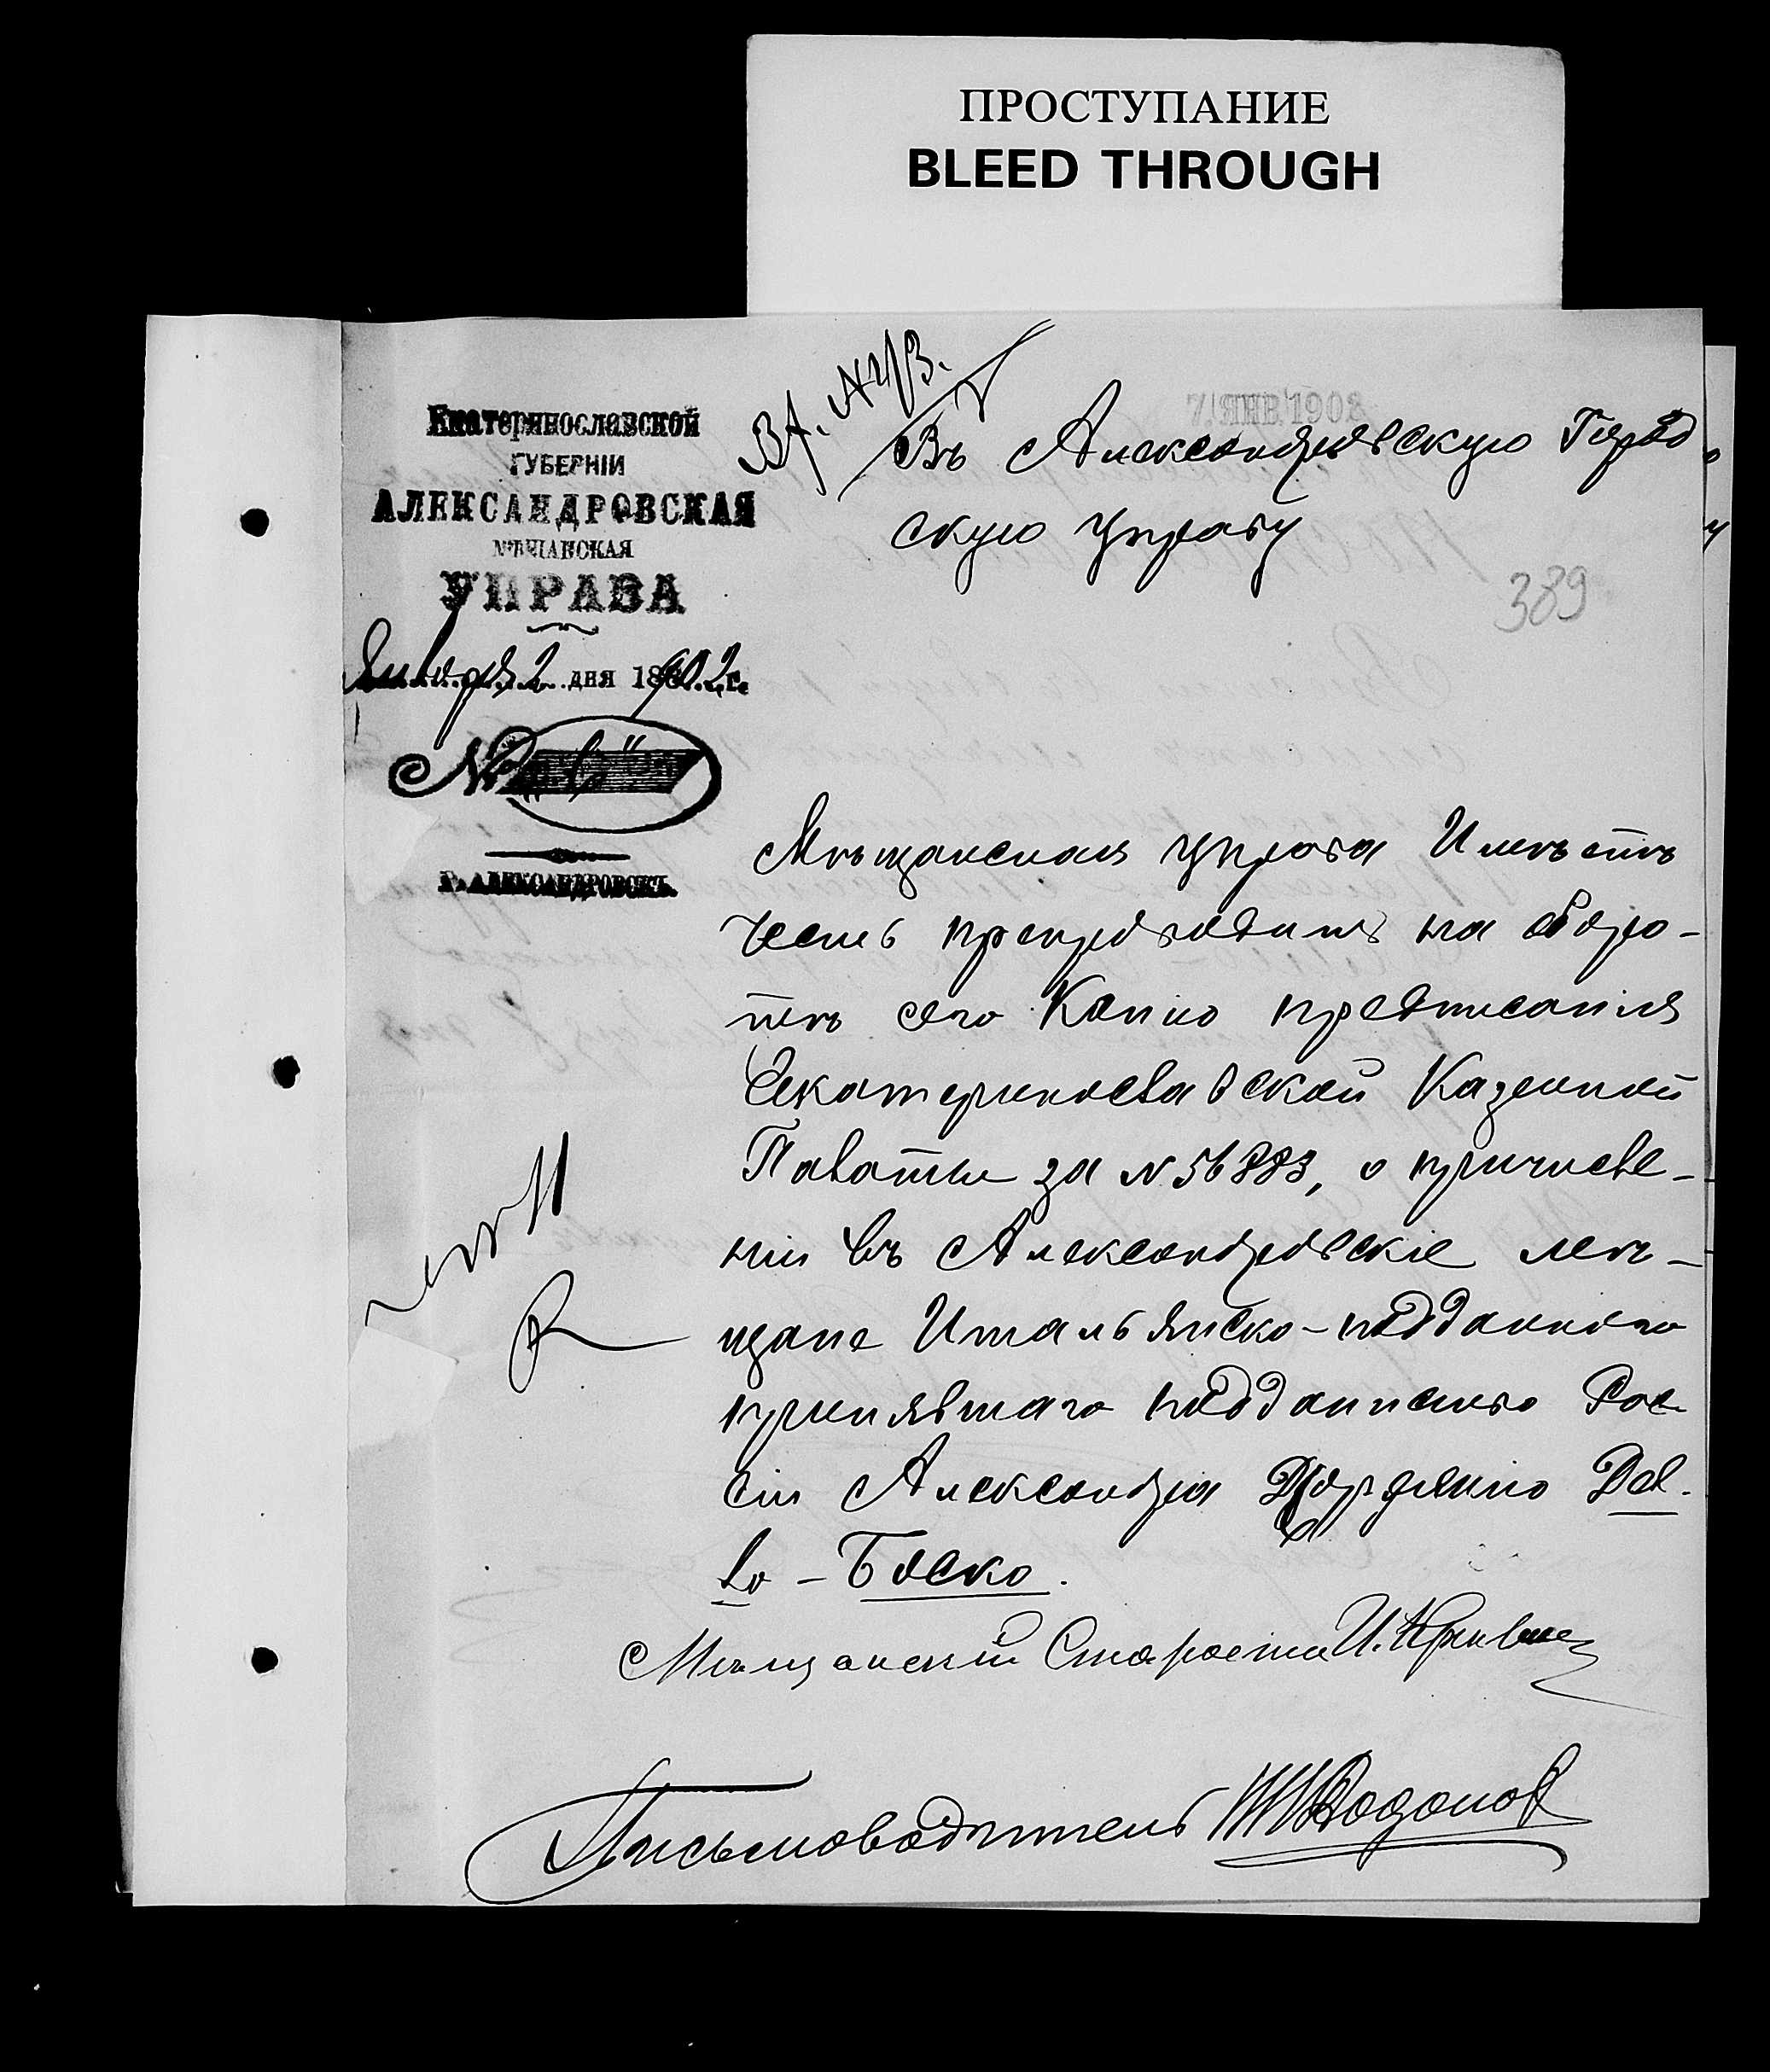 ПРОСТУПАНИЕ
BLEED THROUGH
Екатеринославской
ГУБЕРНІИ
АЛЕКСАНДРОВСКАЯ
МѢЩАНСКАЯ
УПРАВА
Января 2 дня 1902 г.
№
Г. АЛЕКСАНДРОВСКЪ.
7 ЯНВ. 1902
Въ Александровскую Город
скую Управу
389
Мѣщанская Управа Имѣетъ
честь препроводить на оборо-
тѣ сего Копію предписанія
Екатеринославской Казенной
Палаты за № 56883, о причисле-
ніи въ Александровскіе мѣ-
щане Итальянско-подданного
принявшаго подданство Рос-
сіи Александра Дол.
ло-Боско.
Мѣщанскій Староста И.
Письмоводитель